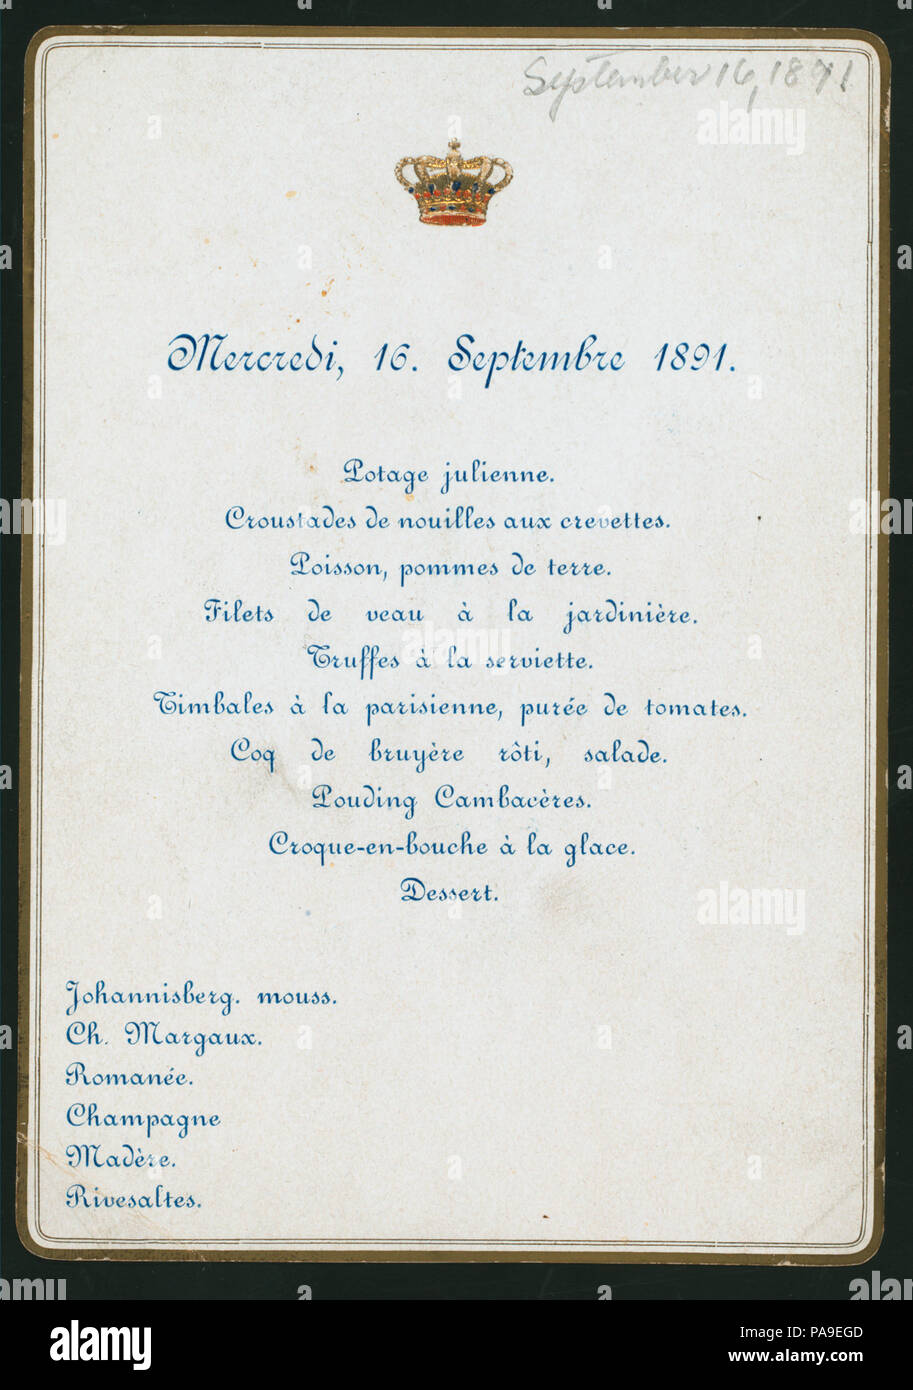 September 16, 1891
Mercredi, 16. Septembre 1891.
Potage julienne.
Croustades de nouilles aux crevettes.
Poisson, pommes de terre.
Filets de veau à la jardinière.
Truffes à la serviette.
Timbales à la parisienne, purée de tomates.
Coq de bruyère rôti, salade.
Pouding Cambacères.
Croque-en-bouche à la glace.
Dessert.
Johannisberg. mouss.
Ch. Margaux.
Romanée.
Champagne
Madère.
Rivesaltes.
alamy
alamy
alamy
alamy
alamy
Image ID: PA9EGD
www.alamy.com